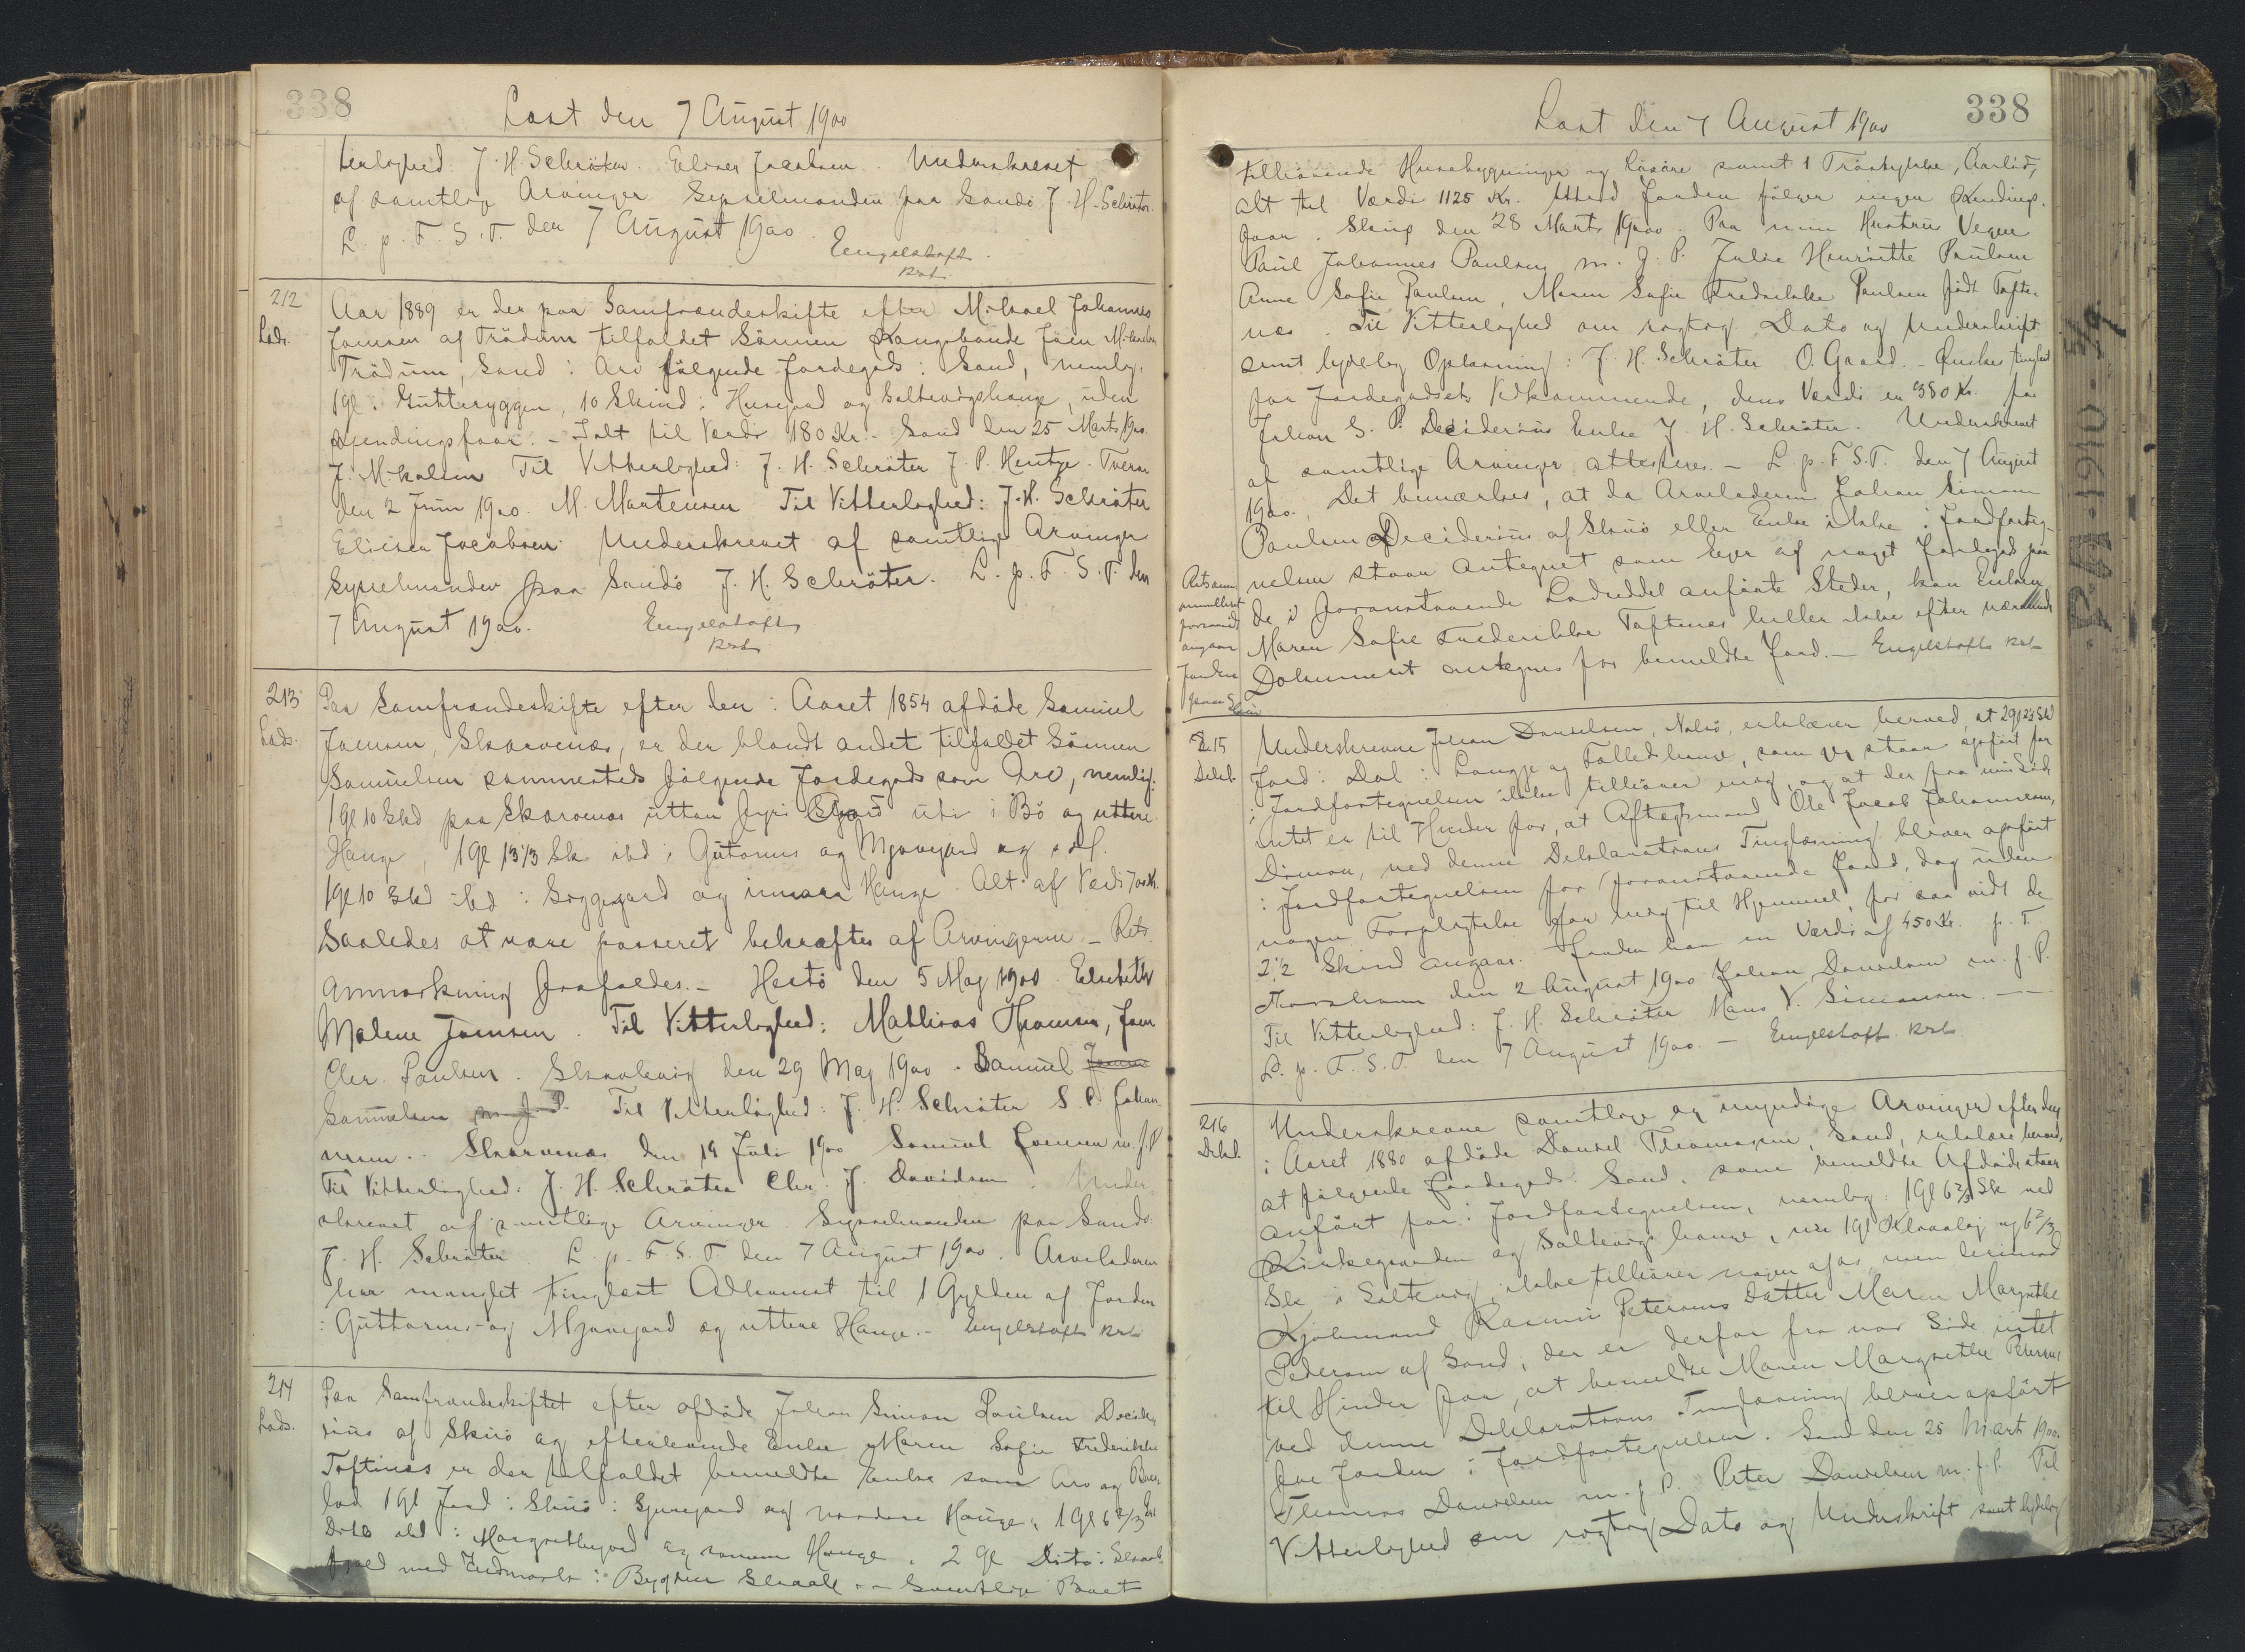 338
Læst den 7 August 1900
terlighed: J. H. Schröter. Elisen Jacobsen. Underskrevet
af samtlige Arvinger Sysselmanden paa Sandö J. H. Schröter.
L. p. F. S. T. den 7 August 1900.
Engelstoft
kst.
212
Lods.
Aar 1889 er der paa Samfrændeskifte efter Mikael Johannes
Joensen af Trödum tilfaldet Sönnen Kongsbonde Joen Mikkelsen
Trödum, Sand i Arv fölgende Jordegods i Sand, nemlig:
1 Gl. i Gutteryggen, 10 Skind i Husegard og Saltevigshauge, uden
Ejendingsfaar. - Jalt til Værdi 180 Kr. - Sand den 25 Marts 1900.
J. Mikalsen Til Vitterlighed: J. H. Schröter J. P. Hentze. Tveraa
den 2 Juni 1900. M. Mortensen Til Vitterlighed: J. H. Schröter
Elisen Jacobsen. Underskrevet af samtlige Arvinger
Sysselmanden paa Sandö J. H. Schröter. L. p. F. S. T. den
7 August 1900.
Engelstoft
kst.
213
Lods.
Paa Samfrændeskifte efter den i Aaret 1854 afdöde Samuel
Joensen, Skarvenæs, er der blandt andet tilfaldet Sönnen
Samuelsen sammesteds fölgende Jordegods som Arv, nemlig:
1 Gl 10 Skd paa Skarvenæs uttan Gjard uti i Bö og uttere
Hauge, 1 Gl 13 1/3 Sk ibd i Guttorms og Mjavegard og
1 Gl 10 Skd ibd i Sjoggegard og innara Hauge. Alt af Værdi 700 Kr.
Saaledes at være passeret bekræftes af Arvingerne. - Rets
anmærkning frafaldes. - Hestö den 5 Maj 1900 Elsebeth
Malene Joensen. Til Vitterlighed: Mathias Thomsen, Joen
Chr. Poulsen. Skaalevig den 29 Maj 1900. Samuel Joensen
Samuelsen m. f. P. Til Vitterlighed: J. H. Schröter S. P. Johan
nesen. Skarvenæs den 19 Juli 1900 Samuel Joensen m. f. P.
Til Vitterlighed: J. H. Schröter Chr. J. Davidsen. Under
skrevet af samtlige Arvinger. Sysselmanden paa Sandö
J. H. Schröter L. p. F. S. T. den 7 August 1900. Arveladeren
har manglet tinglæst Adkomst til 1 Gylden af Jorden
i Guttorms- og Mjavegard og uttere Hauge. - Engelstoft kst.
214
Lods.
Paa Samfrændeskiftet efter afdöde Johan Simon Poulsen Decide
rius af Skuö og efterlevende Enke Maren Sofie Frederikke
Toftenæs er der tilfaldet bemeldte Enke som Arv og Boes
lod 1 Gl Jord i Skuö i Gjaregard og nordere Hauge, 1 Gl 6 2/3 Sk
Dito ibd i Margrethegard og samme Hauge, 2 Gl Dito i Skaale
med Indmark i Bygden Skaale. - Samtlige Boet
338
Læst den 7 August 1900
tilhörende Husebygninger og Lösöre samt 1 Tröstykke,
alt til Værdi 1125 Kr. Med Jorden fölger ingen Ejendings
faar. Skuö den 28 Marts 1900. Paa min Hustrus Vegne
Paul Johannes Poulsen m. f. P. Julie Henriette Poulsen
Anne Sofie Poulsen, Maren Sofie Fredrikke Poulsen födt Tofte
næs. Til Vitterlighed om rigtig Dato og Underskrift
samt lydelig Oplæsning: J. H. Schröter O. Gaard. - Önskes tinglæst
for Jordegodsets Vedkommende, dens Værdi er 380 Kr. for
Johan S. P. Deciderius Enke J. H. Schröter. Underskrevet
af samtlige Arvinger attesteres. - L. p. F. S. T. den 7 August
1900. Det bemærkes, at da Arveladeren Johan Simon
Poulsen Deciderius af Skuö eller Enke ikke i Jordforteg
nelsen staar antegnet som Ejer af noget Jordegods paa
de i foranstaaende Lodseddel anförte Steder, kan Enken
Maren Sofie Frederikke Toftenæs heller ikke efter nærværende
Dokument antegnes for bemeldte Jord. - Engelstoft kst.
215
Dekl.
Underskrevne Johan Danielsen, Nolsö, erklærer herved, at 2 Gl 2 1/2 Skd
Jord i Dal i Langje og Tolledhauge, som jeg staar opfört for
i Jordfortegnelsen ikke tilhörer mig, og at der fra min Side
intet er til Hinder for, at Aftægtsmand Ole Jacob Johannesen,
Dimon, ved denne Deklarations Tinglæsning bliver opfört
i Jordfortegnelsen for foranstaaende Jord, dog uden
nogen Forpligtelse for mig til Hjemmel, for saa vidt de
2 1/2 Skind angaar. Jorden har en Værdi af 450 Kr. p. T.
Thorshavn den 2 August 1900 Johan Danielsen m. f. P.
Til Vitterlighed: J. H. Schröter Hans V. Simonsen.
L. p. F. S. T. den 7 August 1900. - Engelstoft kst.
216
Dekl.
Underskrevne samtlige og myndige Arvinger efter den
i Aaret 1880 afdöde Daniel Thomasen, Sand, erklære herved,
at fölgende Jordegods i Sand, som bemeldte Afdöde staar
anfört for i Jordfortegnelsen, nemlig: 1 Gl 6 2/3 Sk ved
Kirkegaarden og Saltevigs hauge, 1 Gl og 6 2/3
Sk i Saltevig, ikke tilhörer nogen af os, men derimod
Kjöbmand Rasmus Petersens Datter Maren Margrethe
Pedersen af Sand, der er derfor fra vor Side intet
til Hinder for, at bemeldte Maren Margrethe Petersen
ved denne Deklarations Tinglæsning bliver opfört
for Jorden i Jordfortegnelsen. Sand den 25 Marts 1900.
Thomas Danielsen m. f. P. Peter Danielsen m. f. P. Til
Vitterlighed om rigtig Dato og Underskrift samt lydelig